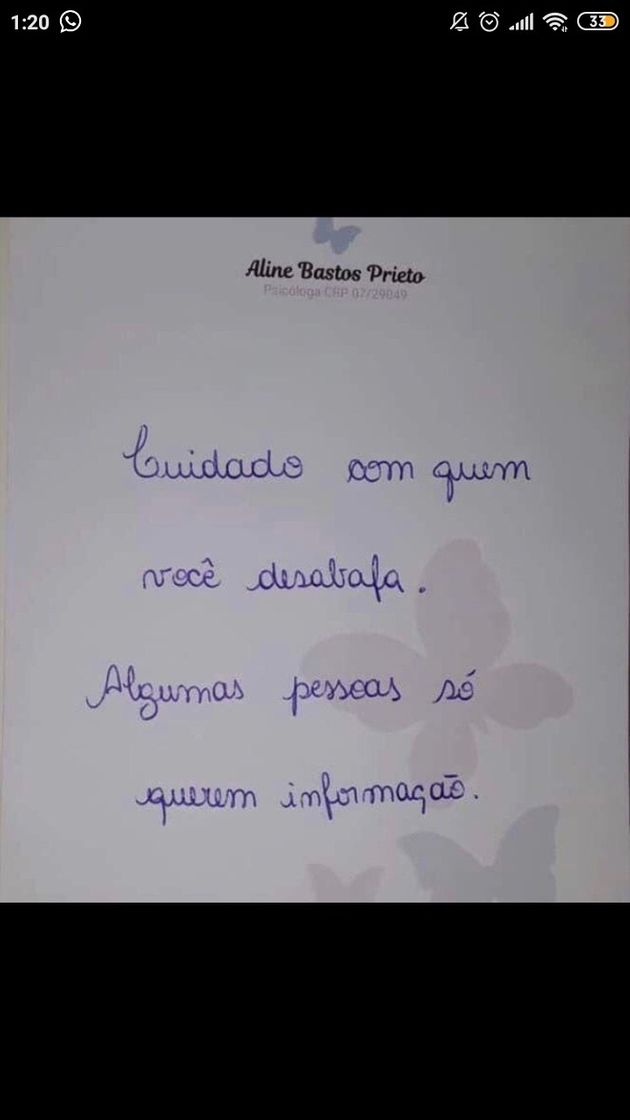 1:20
33
Aline Bastos Prieto
Psicóloga CRP 07/29049
Cuidado com quem
você desabafa.
Algumas pessoas só
querem informação.